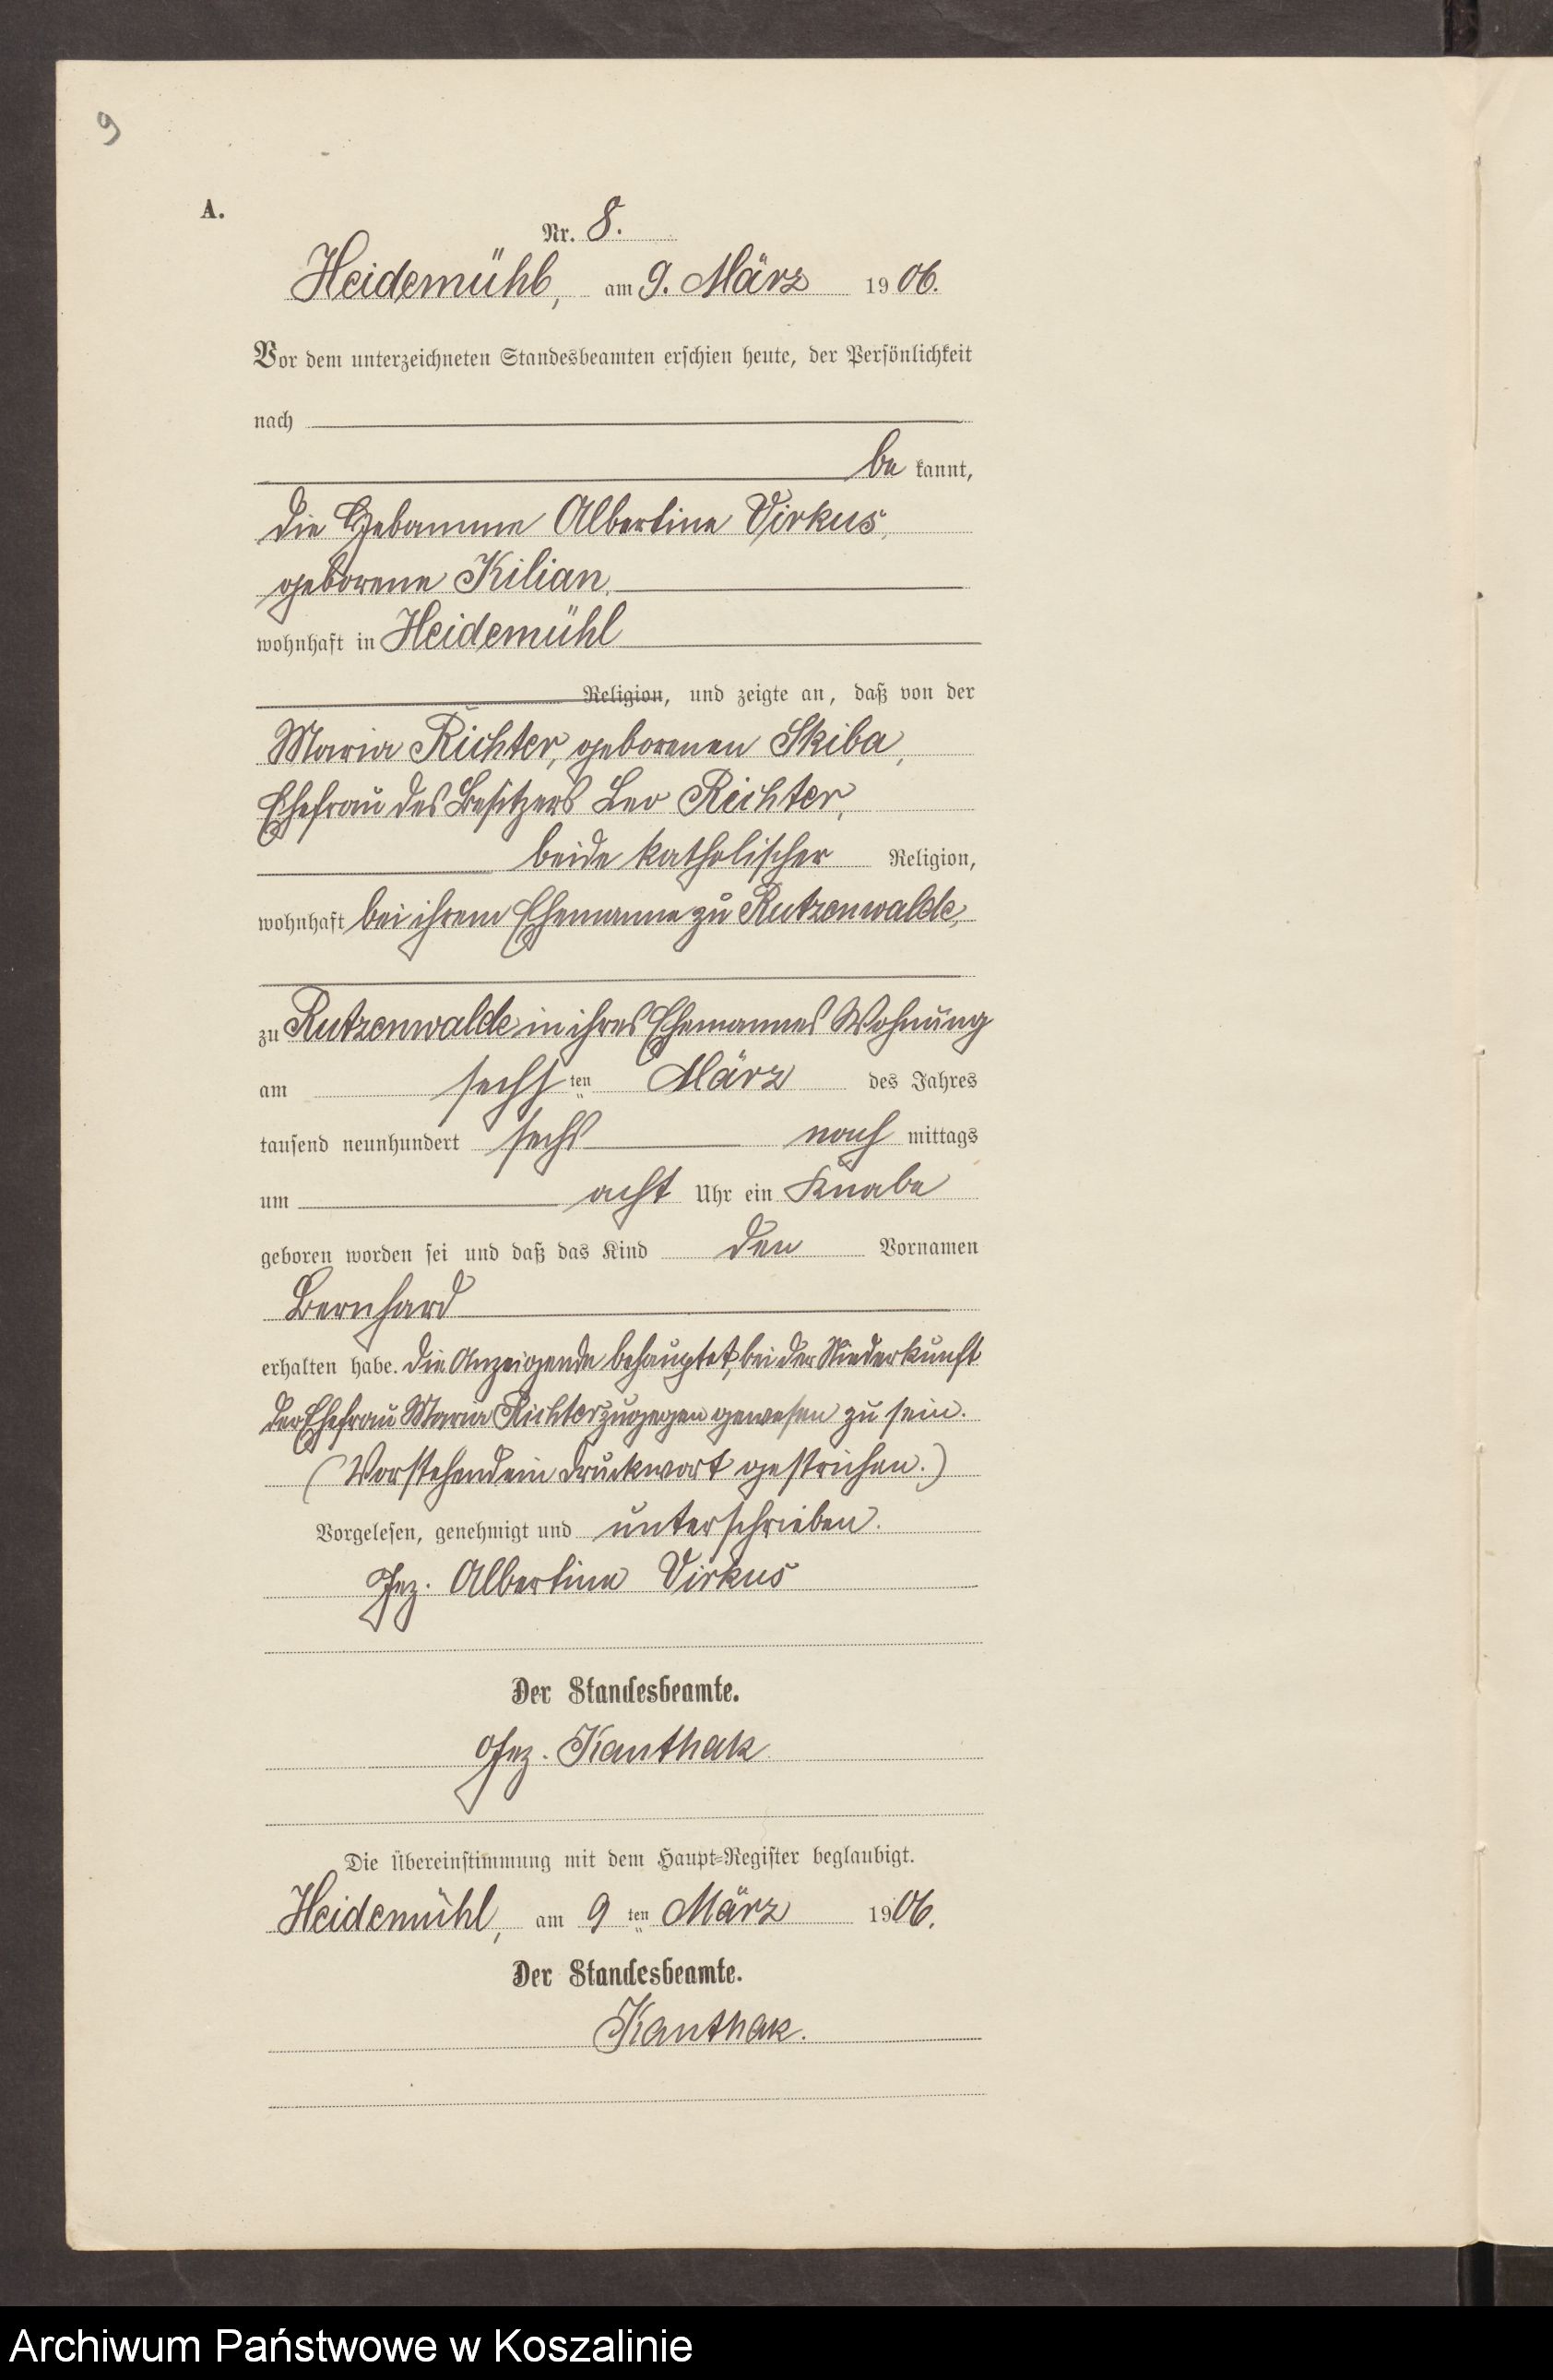 9
A.
Nr. 8.
Heidemühl, am 9. März 1906.
Vor dem unterzeichneten Standesbeamten erschien heute, der Persönlichkeit
nach
be kannt,
die Hebamme Albertine Virkus,
geborene Kilian,
wohnhaft in Heidemühl
Religion, und zeigte an, daß von der
Maria Richter, geborenen Skiba,
Ehefrau des Besitzers Leo Richter,
beide katholischer Religion,
wohnhaft bei ihrem Ehemanne zu Rutzenwalde,
zu Rutzenwalde in ihres Ehemannes Wohnung
am sechsten März des Jahres
tausend neunhundert sechs nach mittags
um acht Uhr ein Knabe
geboren worden sei und daß das Kind den Vornamen
Bernhard
erhalten habe. Die Anzeigende behauptet, bei der Niederkunft
der Ehefrau Maria Richter zugegen gewesen zu sein.
(Vorstehend ein Druckwort gestrichen.)
Vorgelesen, genehmigt und unterschrieben.
Gez. Albertine Virkus
Der Standesbeamte.
Gez. Kanthak
Die Übereinstimmung mit dem Haupt-Register beglaubigt.
Heidemühl, am 9 ten März 1906.
Der Standesbeamte.
Kanthak.
Archiwum Państwowe w Koszalinie